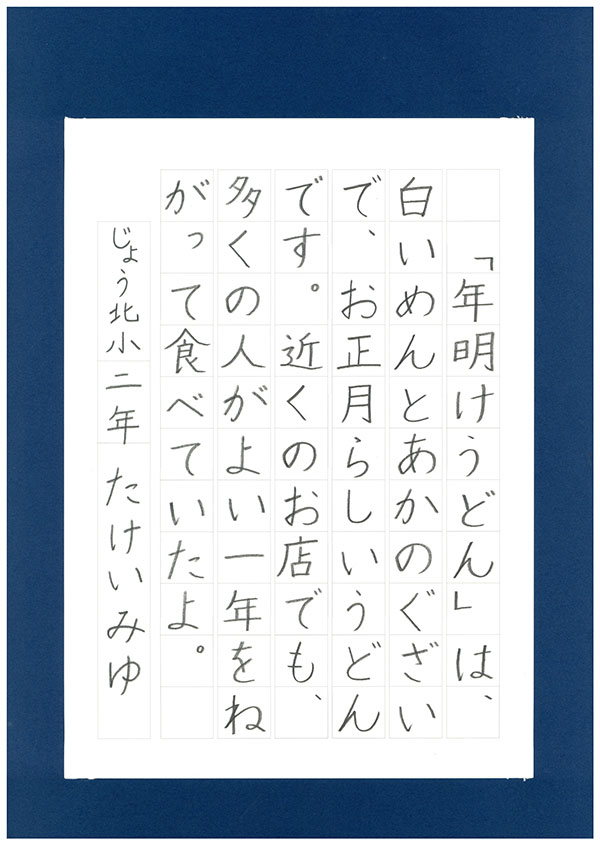 「年明けうどん」は、
白いめんとあかのぐざい
で、お正月らしいうどん
です。近くのお店でも、
多くの人がよい一年をね
がって食べていたよ。
じょう北小二年 たけいみゆ